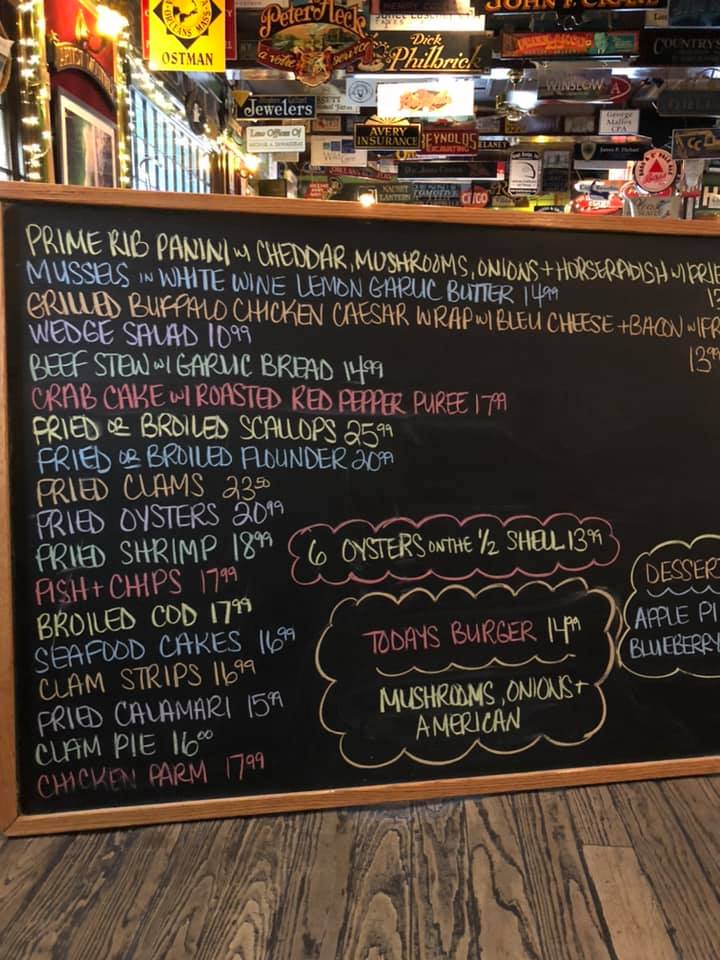 OSTMAN
Peter Heck
Dick Philbrick
Jewelers
Law Offices Of
AVERY
INSURANCE
REYNOLDS
WINSLOW
COUNTRY
George
CPA
CITGO
PRIME RIB PANINI W/ CHEDDAR, MUSHROOMS, ONIONS + HORSERADISH W/ FRIE
MUSSELS IN WHITE WINE LEMON GARLIC BUTTER 1499
GRILLED BUFFALO CHICKEN CAESAR WRAP W/ BLEU CHEESE + BACON W/ FR
1399
WEDGE SALAD 1099
BEEF STEW W/ GARLIC BREAD 1499
CRAB CAKE W/ ROASTED RED PEPPER PUREE 1799
FRIED OR BROILED SCALLOPS 2599
FRIED OR BROILED FLOUNDER 2099
FRIED CLAMS 2350
FRIED OYSTERS 2099
FRIED SHRIMP 1899
FISH + CHIPS 1799
BROILED COD 1799
SEAFOOD CAKES 1699
CLAM STRIPS 1699
FRIED CALAMARI 1599
CLAM PIE 1600
CHICKEN PARM 1799
6 OYSTERS ON THE 1/2 SHELL 1399
TODAYS BURGER 1499
MUSHROOMS, ONIONS +
AMERICAN
DESSER
APPLE PI
BLUEBERRY